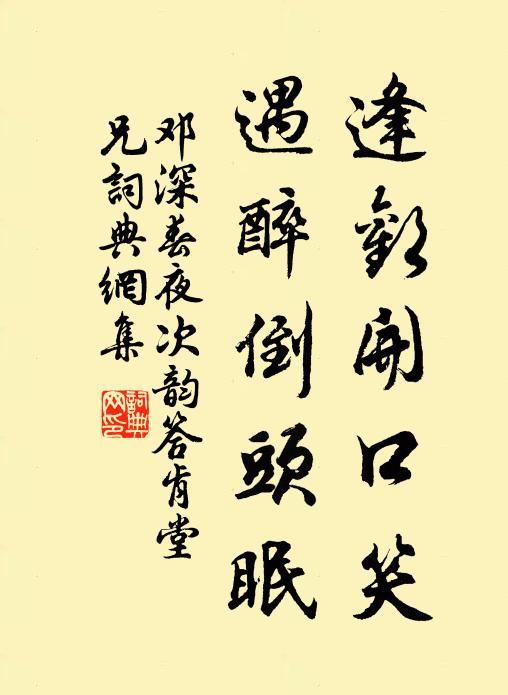 逢歡開口笑
遇醉倒頭眠
邓深春夜次韵答肯堂
兄詞典網集
詞典網印